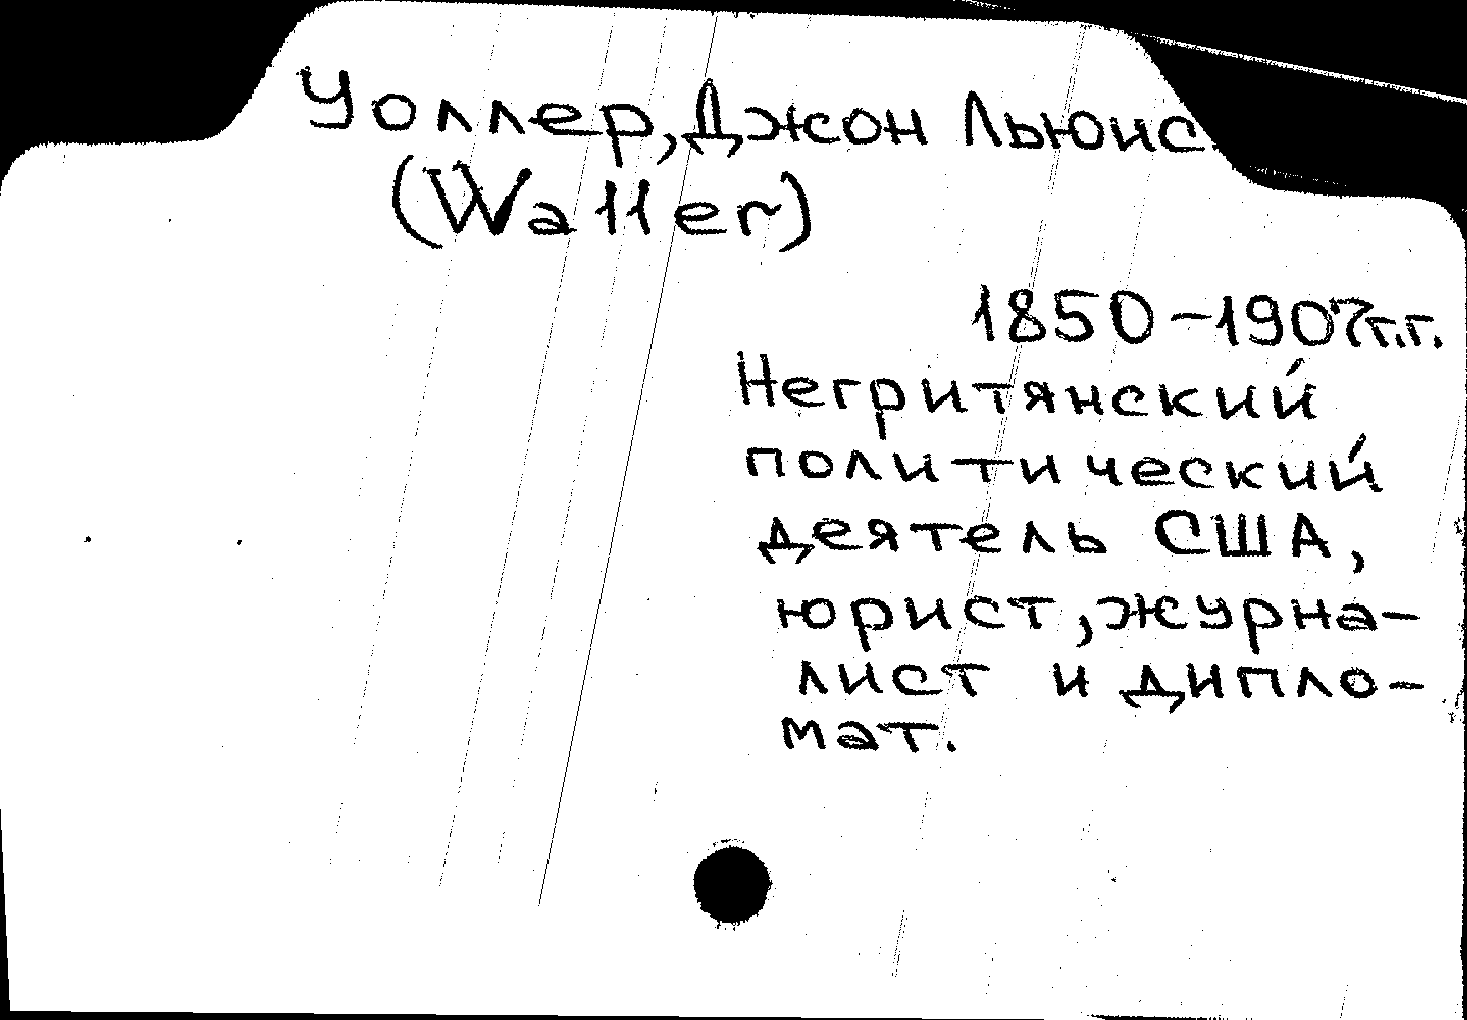 Уоллер, Джон Льюис.
(Waller)
1850-1907г.г.
Негритянский
политический
деятель США,
юрист, журна-
лист и дипло-
мат.